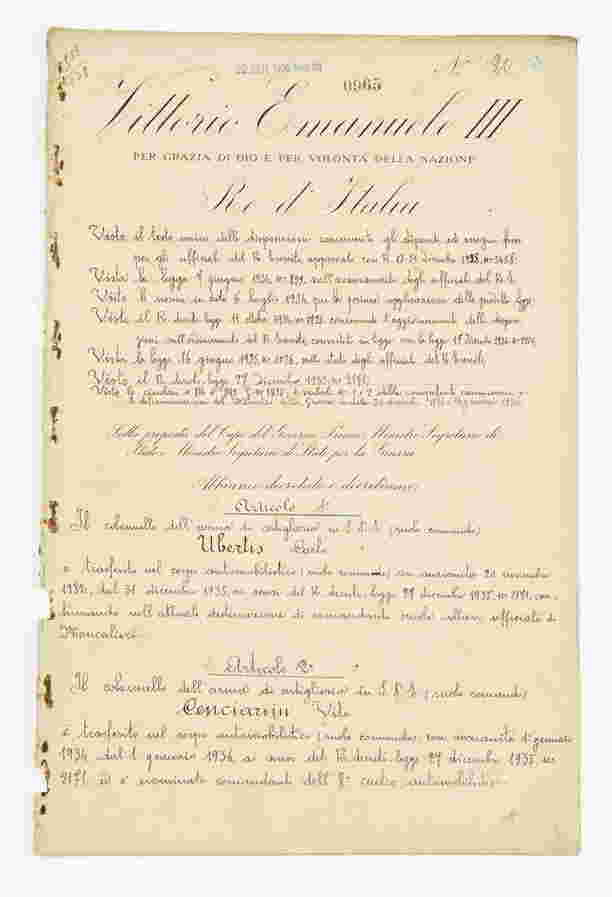 N° 20
0965
Vittorio Emanuele III
PER GRAZIA DI DIO E PER VOLONTÀ DELLA NAZIONE
Re d'Italia
Visto il testo unico delle disposizioni concernenti gli stipendi ed assegni fissi
per gli ufficiali del R. Esercito, approvato con R. D. 31 dicembre 1928, n° 3458;
Vista la legge 7 giugno 1934, n° 899, sull'avanzamento degli ufficiali del R. E.
Viste le norme in data 6 luglio 1934, per la prima applicazione della predetta legge
Visto il R. decreto legge 11 ottobre 1934, n° 1723, concernente l'aggiornamento delle disposi-
zioni sull'avanzamento del R. Esercito, convertito in legge con la legge
Vista la legge 16 giugno 1935, n° 1026, sullo stato degli ufficiali del R. Esercito;
Visto il R. decreto legge 27 dicembre 1935, n° 2171;
Viste le circolari
Sulla proposta del Capo del Governo Primo Ministro Segretario di
Stato e Ministro Segretario di Stato per la Guerra
Abbiamo decretato e decretiamo:
Articolo 1°
Il colonnello dell'arma di artiglieria in S.P.E. (ruolo comando)
Ubertis Carlo
è trasferito nel corpo automobilistico (ruolo comando) con anzianità 20 novembre
1932, dal 31 dicembre 1935, ai sensi del R. decreto legge 27 dicembre 1935, n° 2171, con-
tinuando nell'attuale destinazione di comandante scuola allievi ufficiali di
Moncalieri.
Articolo 2°
Il colonnello dell'arma di artiglieria in S.P.E. (ruolo comando)
Cenciarini Vito
è trasferito nel corpo automobilistico (ruolo comando) con anzianità 1° gennaio
1934, dal 1 gennaio 1936, ai sensi del R. decreto legge 27 dicembre 1935, n°
2171 ed è nominato comandante dell' 8° centro automobilistico.